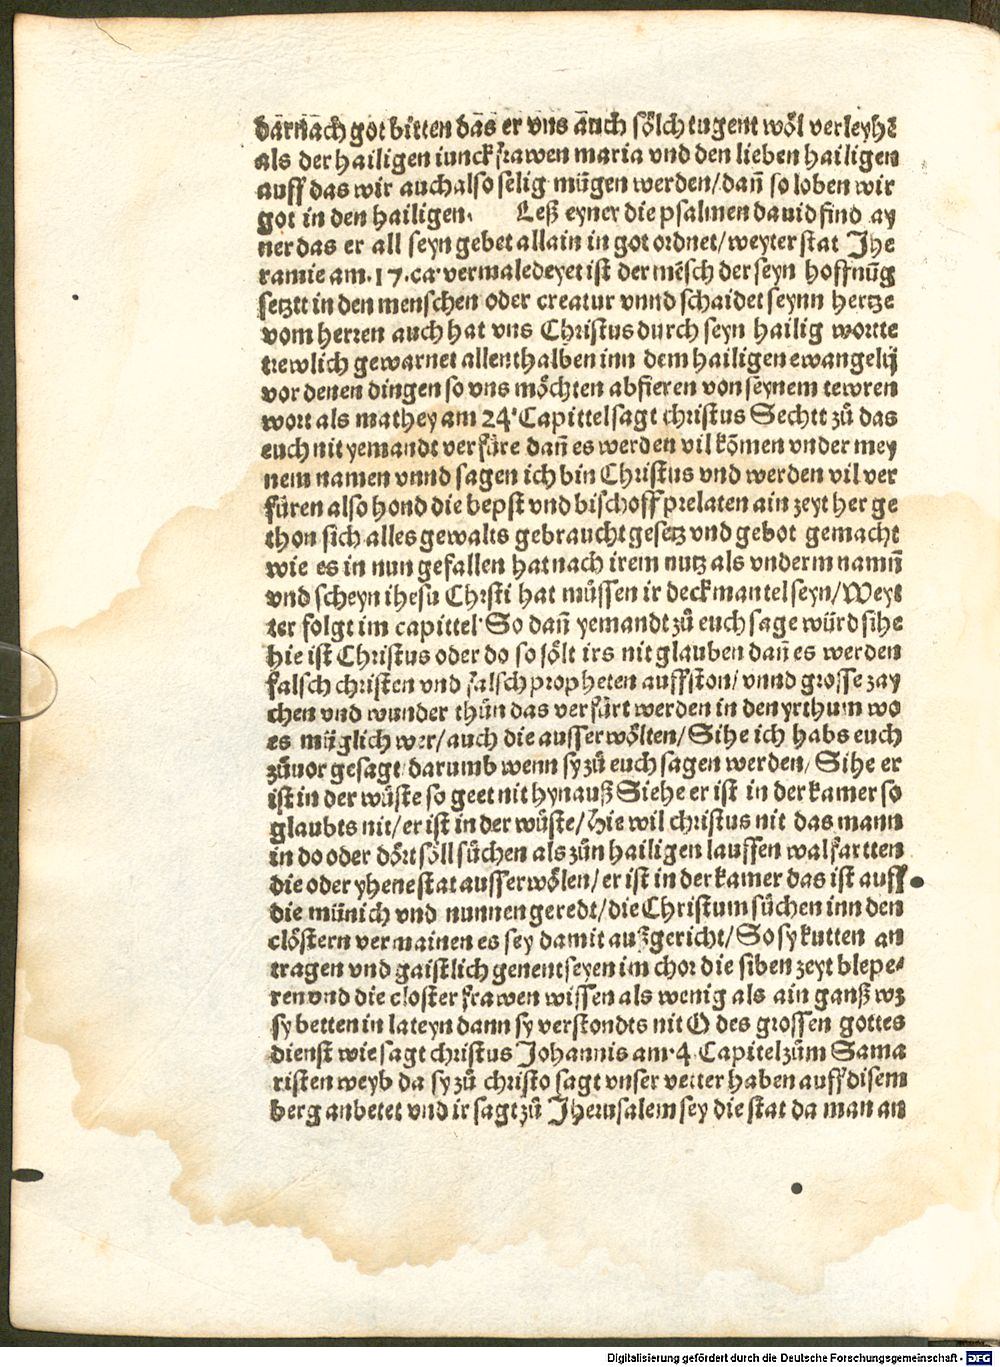 darnach got bitten das er vns auch sölch tugent wöl verleyhē
als der hailigen iunckfrawen maria vnd den lieben hailigen
auff das wir auch also selig mügen werden/dañ so loben wir
got in den hailigen. Leß eyner die psalmen dauid find ay
ner das er all seyn gebet allain in got ordnet/weyter stat Jhe
ramie am.17.ca vermaledeyet ist der mēsch der seyn hoffnūg
setztt in den menschen oder creatur vnnd schaidet seynn hertze
vom herren auch hat vns Christus durch seyn hailig wortte
trewlich gewarnet allenthalben inn dem hailigen ewangelij
vor denen dingen so vns möchten abfieren von seynem tewren
wort als mathey am 24. Capittel sagt christus Sechtt zů das
euch nit yemandt verfüre dañ es werden vil kōmen vnder mey
nem namen vnnd sagen ich bin Christus vnd werden vil ver
füren also hond die bepst vnd bischoff prelaten ain zeyt her ge
thon sich alles gewalts gebraucht gesetz vnd gebot gemacht
wie es in nun gefallen hat nach irem nutz als vnderm namñ
vnd scheyn ihesu Christi hat müssen ir deckmantel seyn/Weyt
ter folgt im capittel So dañ yemandt zů euch sage würd sihe
hie ist Christus oder do so sölt irs nit glauben dañ es werden
falsch christen vnd falsch propheten auffston/vnnd grosse zay
chen vnd wunder thůn das verfürt werden in den yrthum wo
es müglich wer/auch die ausserwölten/Sihe ich habs euch
zůuor gesagt/darumb wenn sy zů euch sagen werden/Sihe er
ist in der wüste so geet nit hynauß Siehe er ist in der kamer so
glaubts nit/er ist in der wüste/hie wil christus nit das mann
in do oder dört söll sůchen als zůn hailigen lauffen walfartten
die oder yhene stat ausserwölen/er ist in der kamer das ist auff
die münich vnd nunnen geredt/die Christum sůchen inn den
clöstern vermainen es sey damit außgericht/So sy kutten an
tragen vnd gaistlich genent seyen im chor die siben zeyt blepe⸗
ren vnd die closterfrawen wissen als wenig als ain ganß wz
sy betten in lateyn dann sy verstondts nit O des grossen gottes
dienst wie sagt christus Johannis am.4 Capitel zům Sama
risten weyb da sy zů christo sagt vnser vetter haben auff disem
berg anbetet vnd ir sagt zů Jherusalem sey die stat da man an
Digitalisierung gefördert durch die Deutsche Forschungsgemeinschaft - DFG